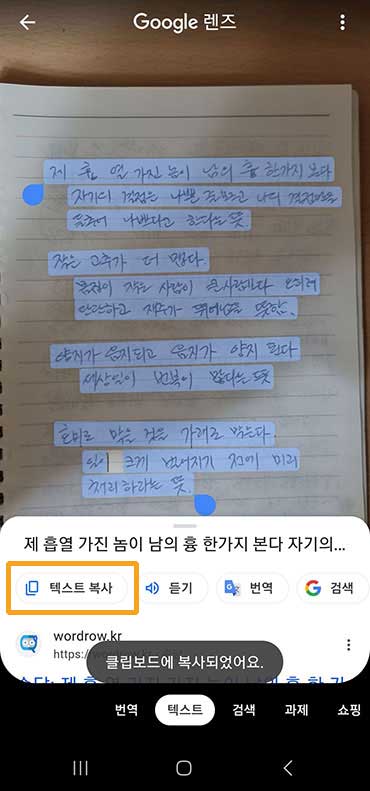 Google 렌즈
제 흉 열 가진 놈이 남의 흉 한가지 본다
자기의 결점은 나쁜 줄 모르고 남의 결점만을
들추어 나쁘다고 한다는 뜻.
작은 고추가 더 맵다.
몸집이 작은 사람이 큰사람보다 오히려
단단하고 재주가 뛰어남을 뜻함.
양지가 음지되고 음지가 양지 된다
세상일이 번복이 많다는 뜻
호미로 막을 것을 가래로 막는다.
일이 크게 벌어지기 전에 미리
처리하라는 뜻.
제 흡열 가진 놈이 남의 흉 한가지 본다 자기의...
텍스트 복사
듣기
번역
검색
wordrow.kr
https://wordrow.kr
클립보드에 복사되었어요.
번역
텍스트
검색
과제
쇼핑